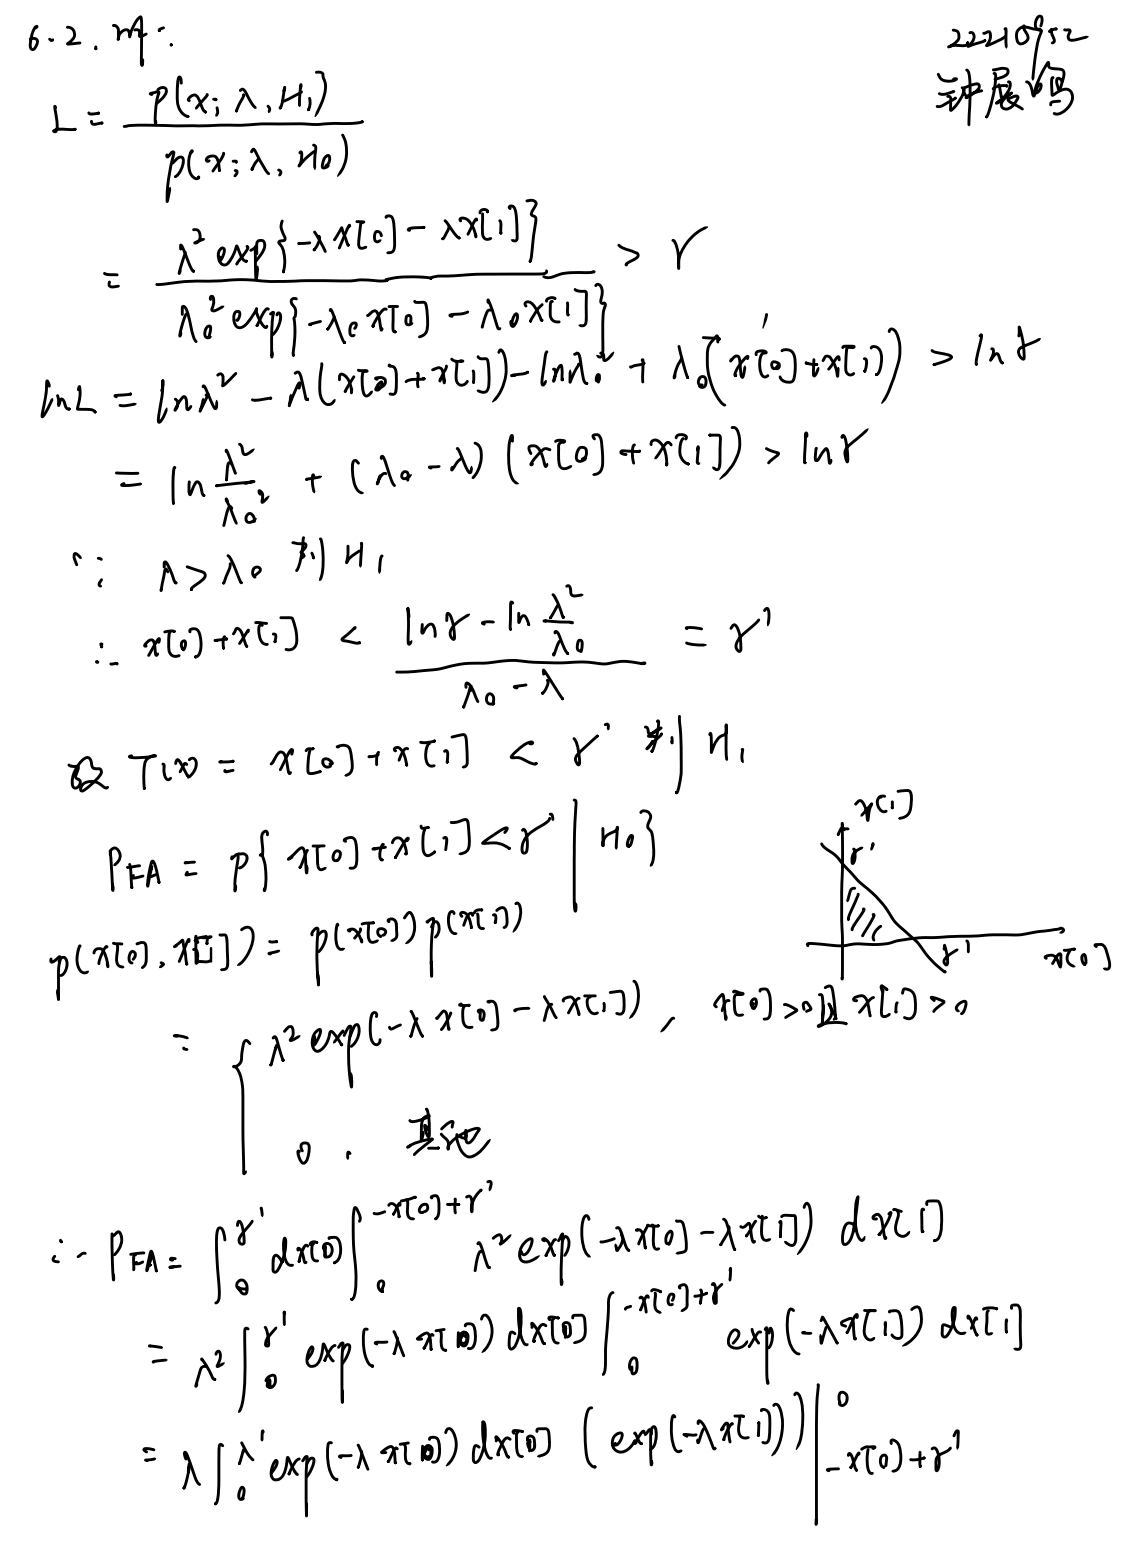 6.2. 解:
22210952
钟展鸣
L = \frac{p(x; λ, H_1)}{p(x; λ, H_0)}
= \frac{λ^2 exp{-λx[0] - λx[1]}}{λ_0^2 exp{-λ_0x[0] - λ_0x[1]}} > γ
lnL = lnλ^2 - λ(x[0]+x[1]) - lnλ_0^2 + λ_0(x[0]+x[1]) > lnγ
= ln\frac{λ^2}{λ_0^2} + (λ_0 - λ)(x[0]+x[1]) > lnγ
∵ λ > λ_0 判 H_1
∴ x[0]+x[1] < \frac{lnγ - ln\frac{λ^2}{λ_0}}{λ_0 - λ} = γ'
故 T(x) = x[0]+x[1] < γ' 判 H_1
P_{FA} = p{x[0]+x[1] < γ' | H_0}
x[1]
γ'
γ'
x[0]
p(x[0], x[1]) = p(x[0])p(x[1])
= { λ^2 exp(-λx[0] - λx[1]), x[0]>0且x[1]>0
0. 其他
∴ P_{FA} = ∫_0^{γ'} dx[0] ∫_0^{-x[0]+γ'} λ^2 exp(-λx[0] - λx[1]) dx[1]
= λ^2 ∫_0^{γ'} exp(-λx[0]) dx[0] ∫_0^{-x[0]+γ'} exp(-λx[1]) dx[1]
= λ ∫_0^{λ'} exp(-λx[0]) dx[0] (exp(-λx[1])) |_{-x[0]+γ'}^0